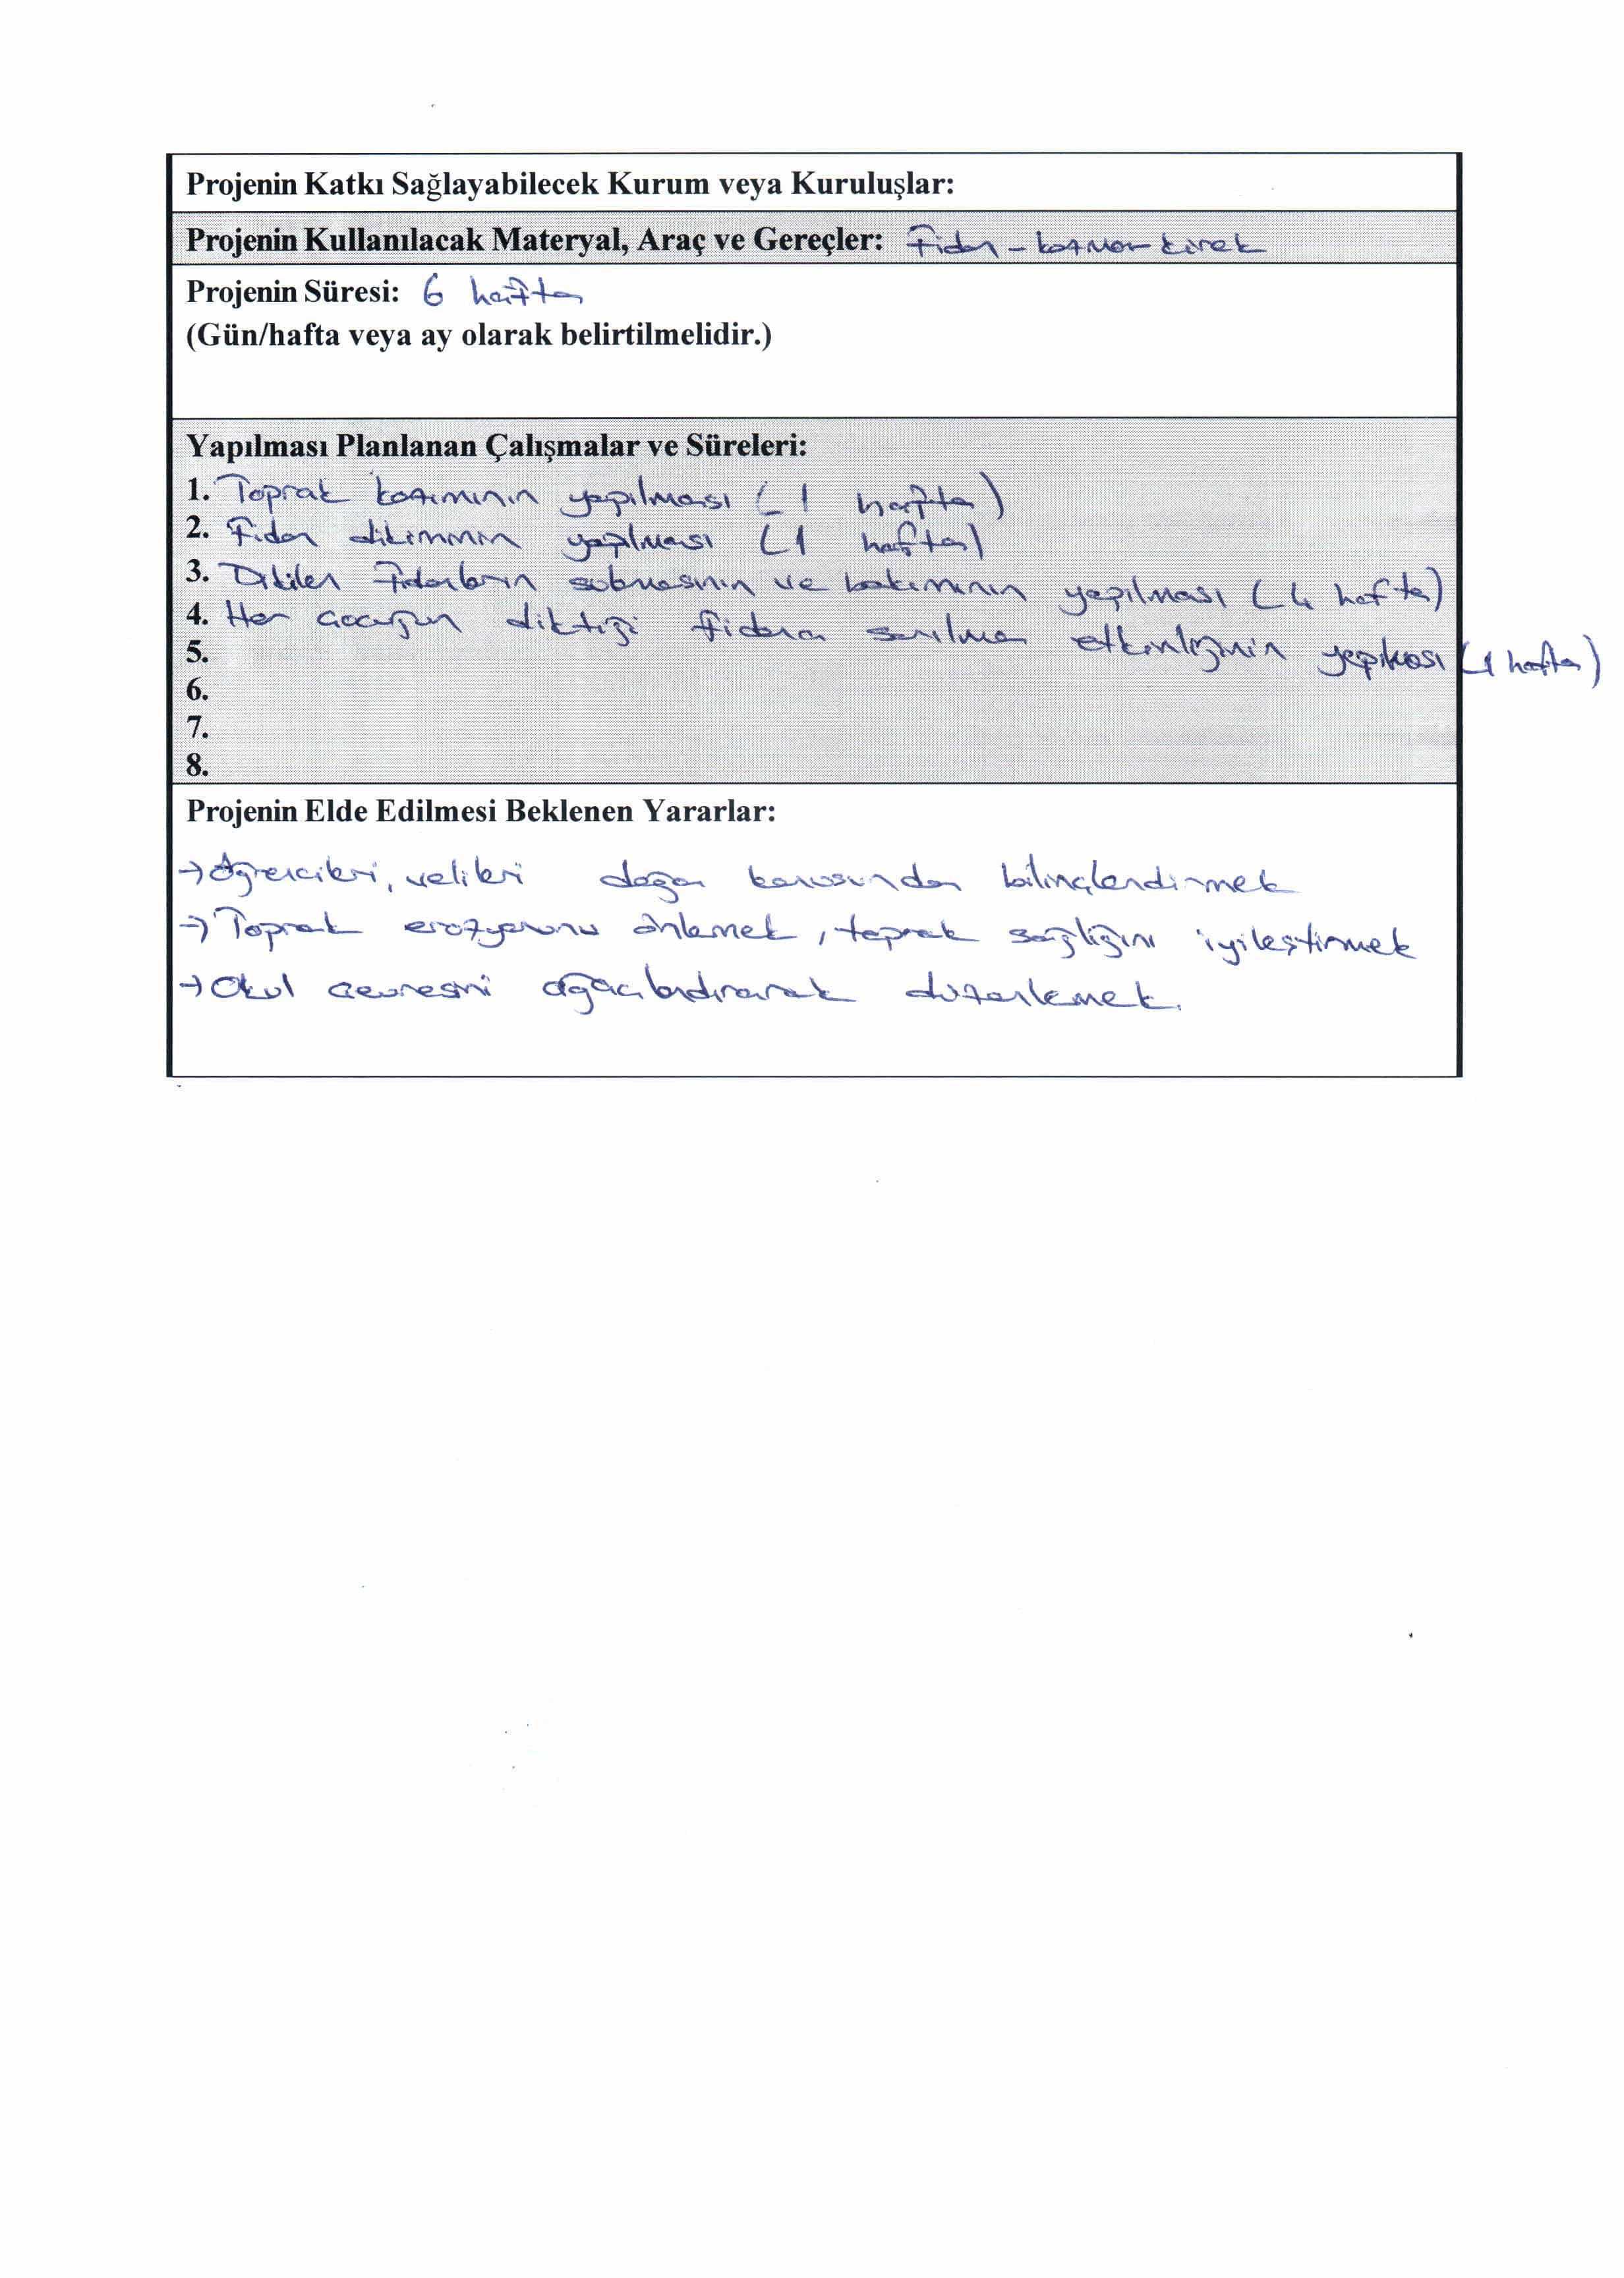 Projenin Katkı Sağlayabilecek Kurum veya Kuruluşlar:
Projenin Kullanılacak Materyal, Araç ve Gereçler: Fidan - kazma kürek
Projenin Süresi: 6 hafta
(Gün/hafta veya ay olarak belirtilmelidir.)
Yapılması Planlanan Çalışmalar ve Süreleri:
1. Toprak kazımının yapılması (1 hafta)
2. Fidan dikiminin yapılması (1 hafta)
3. Dikilen fidanların sulamasının ve bakımının yapılması (4 hafta)
4. Her çocuğun diktiği fidana sarılma etkinliğinin yapılması (1 hafta)
5.
6.
7.
8.
Projenin Elde Edilmesi Beklenen Yararlar:
→ Öğrencileri, velileri doğa konusunda bilinçlendirmek
→ Toprak erozyonunu önlemek, toprak sağlığını iyileştirmek
→ Okul çevresini ağaçlandırarak düzenlemek.